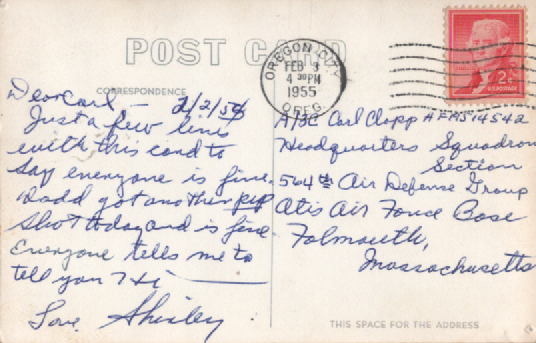 POST CARD
OREGON CITY
FEB 3
4 30 PM
1955
OREG.
2¢
U.S. POSTAGE
CORRESPONDENCE
Dear Carl, — 2/2/55
Just a few lines
with this card to
say everyone is fine.
Dadd got another pep
shot today and is fine.
Everyone tells me to
tell you "Hi"
Love, Shirley
A/3C Carl Clapp AF
Headquarters Squadron
Section
564th Air Defense Group
Otis Air Force Base
Falmouth,
Massachusetts
THIS SPACE FOR THE ADDRESS